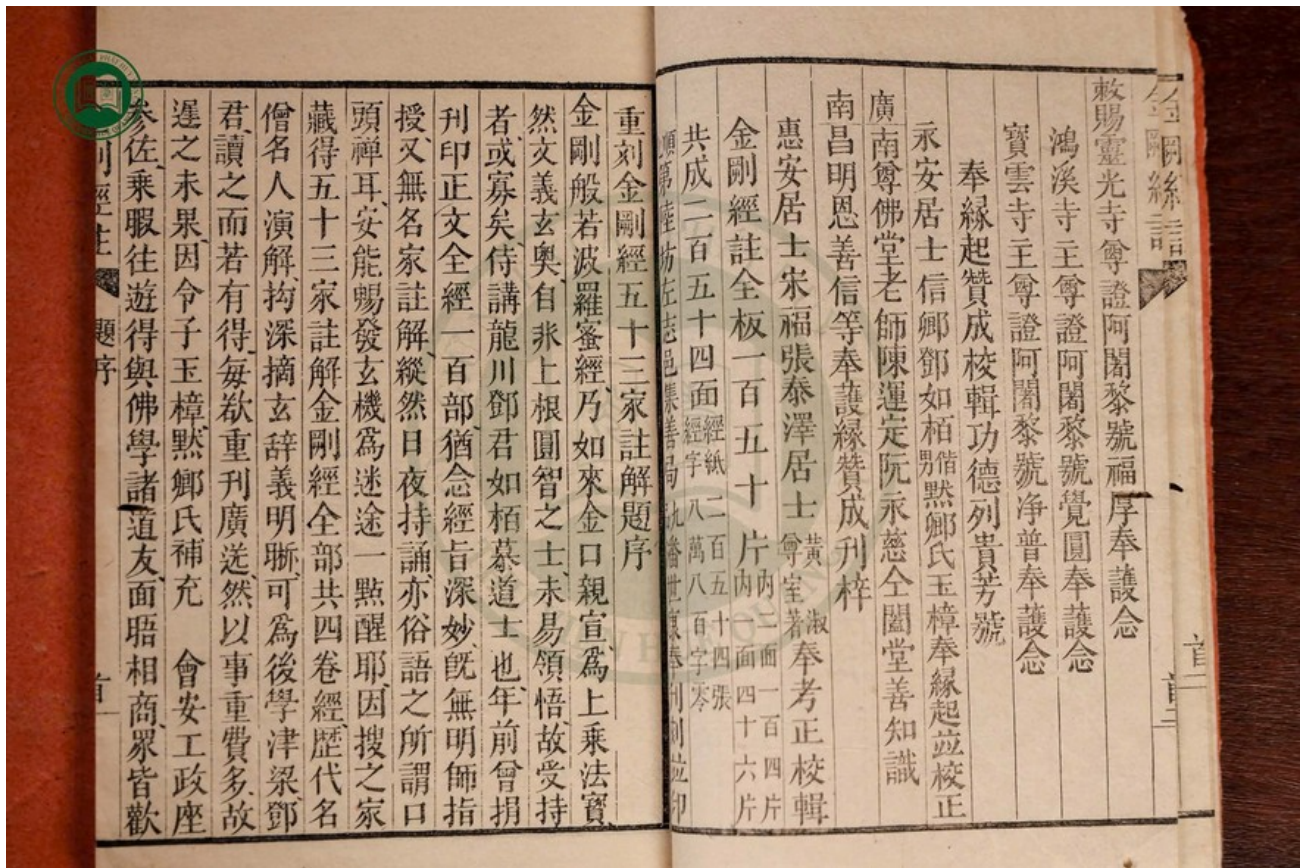 敕賜靈光寺尊證阿闍黎號福厚奉護念
鴻溪寺主尊證阿闍黎號覺圓奉護念
寶雲寺主尊證阿闍黎號净普奉護念
奉緣起贊成校輯功德列貴芳號
永安居士信卿鄧如栢偕男默卿氏玉樟奉緣起並校正
廣南尊佛堂老師陳運定阮永慈仝闔堂善知識
南昌明恩善信等奉護緣贊成刊梓
惠安居士宋福張泰澤居士黃尊室著淑奉考正校輯
金剛經註全板一百五十片内二面一百四片内一面四十六片
共成二百五十四面經紙二百五十四張經字八萬八百字零
重刻金剛經五十三家註解題序
金剛般若波羅蜜經乃如來金口親宣、爲上乘法寶、
然文義玄奥、自非上根圓智之士、未易領悟、故受持
者、或寡矣、侍講龍川鄧君如栢慕道士也、年前曾捐
刊印正文全經一百部、猶念經旨深妙、旣無明師指
授、又無名家註解、縱然日夜持誦、亦俗語之所謂口
頭禪耳、安能暢發玄機爲迷途一點醒耶、因搜之家
藏得五十三家註解金剛經全部共四卷經、歷代名
僧名人演解、抅深摘玄辞義明晰、可爲後學津梁鄧
君、讀之而若有得、每欲重刊廣送、然以事重費多、故
遲之未果、因令子玉樟默卿氏補充 會安工政座
參佐、乘暇往遊得與佛學諸道友、面晤相商、眾皆歡
題序